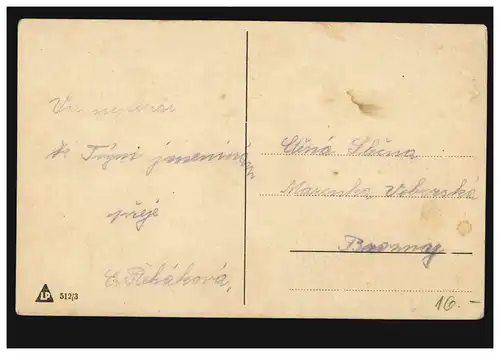 Vše nejlepší
k Tvým jmeninám
přeje
C. Řeháková,
Ctěná Slečna
Marenka Voborská
LP 512/3
16.-